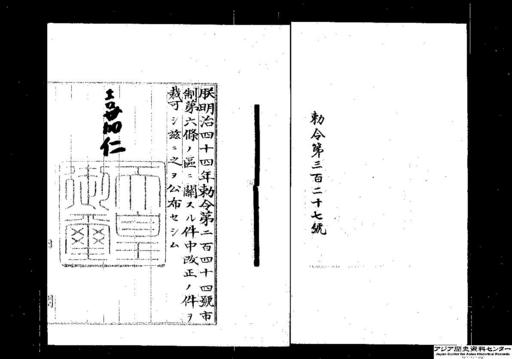 勅令第三百二十七號
朕明治四十四年勅令第二百四十四號市
制第六條ノ區ニ關スル件中改正ノ件ヲ
裁可シ玆ニ之ヲ公布セシム
嘉仁
天皇
御璽
アジア歴史資料センター
Japan Center for Asian Historical Records